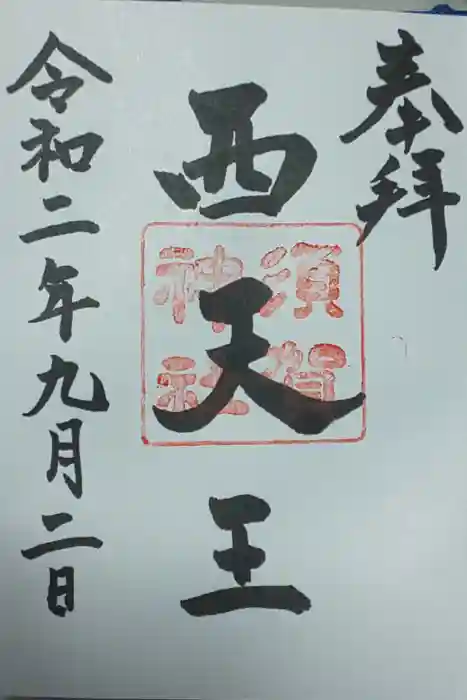 奉拝
西天王
須賀
神社
令和二年九月二日